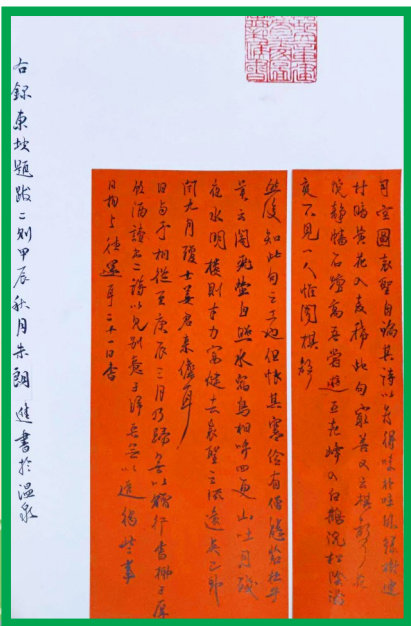 司空圖表聖自論其詩以為得味於味外綠樹連
村暗黃花入麥稀此句最善又云棋聲花
院靜幡石壇高吾嘗遊五老峰入白鶴院松陰滿
庭不見一人惟聞棋聲
然後知此句之工也但恨其寒儉有僧態若杜子
美云闇飛螢自照水宿鳥相呼四更山吐月殘
夜水明樓則才力富健去表聖之流遠矣己卯
閏九月瓊士姜君來儋耳
日與予相從至庚辰三月乃歸無以贈行書柳子厚
飲酒讀書二詩以見別意子歸吾無以遣獨此事
日相與往還耳二十一日書
右錄東坡題跋二則甲辰秋月朱朗進書於溫泉